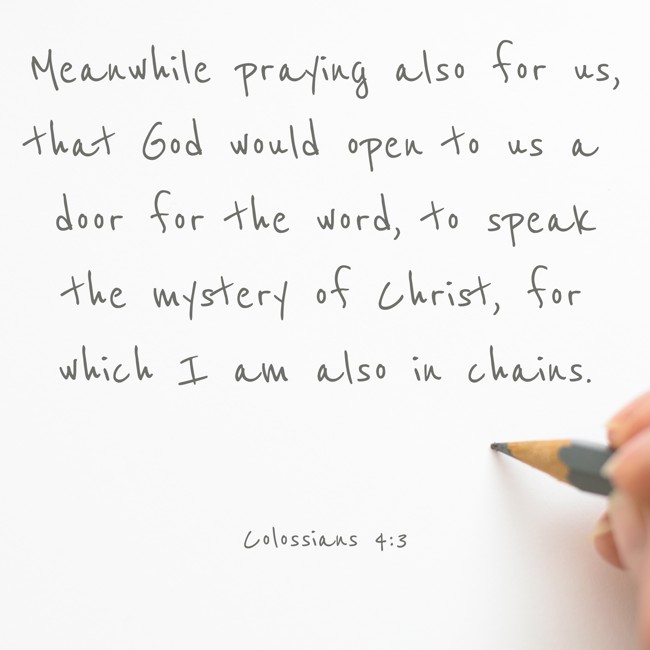 Meanwhile praying also for us,
that God would open to us a
door for the word, to speak
the mystery of Christ, for
which I am also in chains.
Colossians 4:3